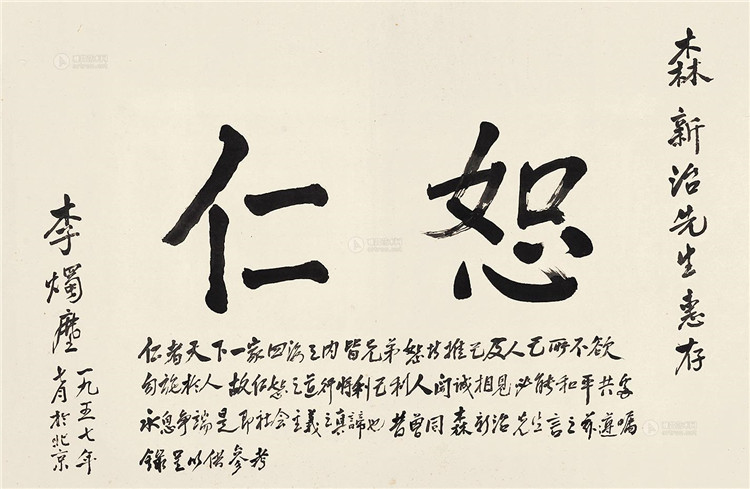 森新治先生惠存
仁恕
仁者天下一家四海之内皆兄弟恕者推己及人己所不欲
勿施於人故仁恕之道行將利己利人開誠相見必能和平共
永息爭端是即社会主義之真諦也昔曾同森新治先生言之茲遵囑
錄呈以供參考
李燭塵
一九五七年
七月於北京